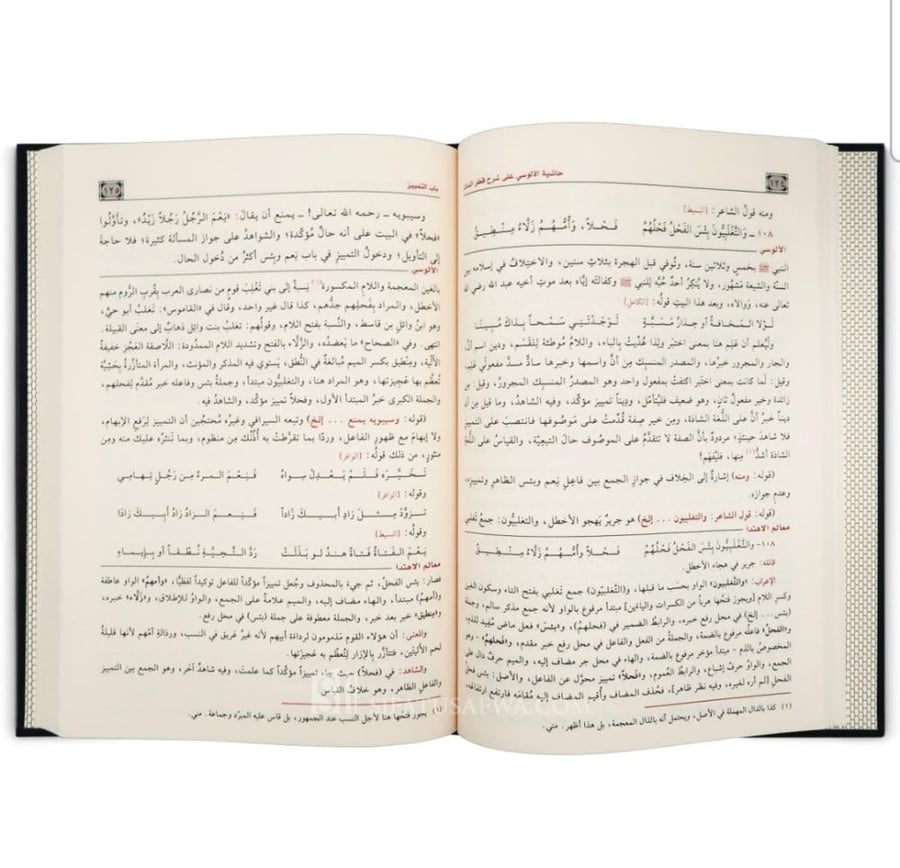 حاشية الآلوسي على شرح قطر الندى
١٢٤
ومنه قولُ الشاعر: [البسيط]
١٠٨ ـ وَالتَّغْلِبِيُّونَ بِئْسَ الْفَحْلُ فَحْلُهُمُ فَحْلاً، وَأُمُّهُمُ زَلَّاءُ مِنْطِيقُ
الآلوسي
النبي ﷺ بخمسٍ وثلاثين سنة، وتُوفي قبل الهجرة بثلاثِ سنين، والاختِلافُ في إسلامه بين
السنَّة والشيعة مَشْهُور، ولا يُنْكِرُ أحدٌ حُبَّه للنبي ﷺ وكفالتَه إيَّاه بعد موتِ أخيه عبد الله رضي الله
تعالى عنه، وَوَالاه، وبعد هذا البيتِ قولُه: [الكامل]
لَوْلَا المَخَافَةُ أو حِذَارُ مَسَبَّةٍ لَوَجَدْتَنِي سَمْحاً بِذَاكَ مُبِينَا
وليُعلم أن عَلِم هنا بمعنى اختَبر ولِذا عُدِّيتْ بالباء، واللامُ مُوطئة للقَسَم، ودِين اسم أنَّ
والجار والمجرور خبرُها، والمصدر المنسبِك مِن أنَّ واسمها وخبرها سادٌّ مسدَّ مفعولَي عَلِم،
وقيل: لَمّا كانت بمعنى اختَبر اكتفتْ بمفعول واحد وهو المصدرُ المنسبِك المجرورُ، وقيل: مِن
زائدة وخير مفعولٌ ثانٍ، وهو ضعيف فليُتأمّل، ودِيناً تمييز مؤكِّد، وفيه الشاهد، وما قيل من أن
ديناً خبرُ أنَّ على اللُّغة الشاذة، ومِن خيرِ صِفة قُدِّمتْ على مَوْصُوفها فانتصبَ على التمييز
فلا شاهِدَ حينئذٍ؛ مردودٌ بأنَّ الصفة لا تتقدَّم على الموصوف حالَ التبعِيَّة، والقِياس على اللُّغة
الشاذة أشذُّ(١) مِنها، فليُفهَم!
(قوله: ومنه) إشارةٌ إلى الخِلاف في جوازِ الجمع بين فاعِلِ نِعم وبئس الظاهِر وتمييزه
وعدمِ جوازه.
(قوله: قول الشاعر: والتغلبيون ... إلخ) هو جرير يَهجو الأخطل، والتغلبيُّون: جمعُ تغلبي
معالم الاهتدا
١٠٨- والتَّغْلِبِيُّونَ بِئْسَ الفَحْلُ فَحْلُهُمُ فَحْلاً وأُمُّهُمُ زَلَّاءُ مِنْطِيقُ
قائله: جرير في هجاء الأخطل.
الإعراب: «والتَّغْلِبِيُّونَ» الواو بحسَب ما قبلها، و(التَّغْلِبِيُّون) جمع تَغلبي بفتح التاء وسكون الغين
وكسر اللام [ويجوز فتحُها هرباً من الكسرات والياءَين] مبتدأ مرفوع بالواو لأنه جمع مذكر سالم، وجملة
(بئس... إلخ) في محل رفع خبره، والرابط الضمير في (فحلهم)، و«بئسَ» فعل ماض مُفيد للذم،
و«الفحلُ» فاعلُه مرفوع بالضمة، والجملةُ من الفعل والفاعل في محل رفع خبر مقدم، و«فَحلُهم» - وهو
المخصوصُ بالذم - مبتدأ مؤخر مرفوع بالضمة، والهاء في محل جر مضاف إليه، والميم حرفٌ دال على
الجمع، والواوُ حرفُ إشباع، والرابطُ العُموم، و«فَحلاً» تمييز محوَّل عن الفاعل، والأصل: بئس فحلُ
الفحل [لم أره لغيره، وفيه نظر ظاهر]، فحُذف المضاف وأُقيم المضاف إليه مُقامَه فارتفع ارتفاعَه،
(١) كذا بالدال المهملة في الأصل، ويحتمل أنه بالذال المعجمة، بل هذا أظهر. مني.
باب التمييز
١٢٥
وسيبويه ـ رحمه الله تعالى! ـ يمنع أن يقالَ: «نِعْمَ الرَّجُلُ رَجُلاً زَيْدٌ»، وتأوَّلُوا
«فحلاً» في البيت على أنه حالٌ مؤكِّدة؛ والشواهدُ على جواز المسألة كثيرة؛ فلا حاجةَ
إلى التأويل؛ ودخولُ التمييزِ في باب نِعم وبِئس أكثرُ من دُخول الحال.
الآلوسي
بالغين المعجمة واللامِ المكسورة(١) نِسبةٌ إلى بني تَغْلِب قومٍ من نصارى العرب بقُربِ الرُّوم منهم
الأخطل، والمراد بفَحلِهم جدُّهم، كذا قال غير واحد، وقال في «القاموس»: تَغلب أبو حيٍّ،
وهو ابنُ وائلِ بن قاسط، والنِّسبة بفتح اللام، وقولُهم: تغلبُ بنت وائل ذهابٌ إلى معنى القبيلة.
انتهى. وفي «الصحاح» ما يَعضدُه، والزَّلَّاء بالفتح وتشديد اللام الممدودة: اللَّاصقة العَجُز خفيفة
الألْية، ومِنْطِيق بكسر الميم مُبالغةٌ في النُّطق، يَستوي فيه المذكر والمؤنث، والمرأة المتأزِّرة بحَشِيَّة
تُعظِّم بها عَجِيزتها، وهو المراد هنا، والتغلبيون مبتدأ، وجملةُ بئس وفاعله خبر مُقدَّم لفحلهم،
والجملة الكبرى خبرُ المبتدأ الأول، وفحلاً تمييز مؤكِّد، والشاهدُ فيه.
(قوله: وسيبويه يمنع ... إلخ) وتبعه السيرافي وغيرُه مُحتجِّين أن التمييز لِرَفعِ الإبهام،
ولا إبهامَ مع ظهورِ الفاعل، وردًّا بما تقرَّطتْ به أُذُنُك مِن منظوم، وبما نَنثُره عليك منه ومن
منثور، من ذلك قولُه: [الوافر]
تَخَيَّرَه فَلَمْ يَعْدِلْ سِواهُ فَنِعْمَ المرءُ مِن رَجُلٍ تِهامِي
وقوله: [الوافر]
تَزَوَّدْ مِثْلَ زَادِ أَبِيكَ زَاداً فَنِعْمَ الزادُ زَادُ أَبِيكَ زَادَا
وقولُه: [البسيط]
نِعْمَ الفَتاةُ فَتاةً هِندُ لو بَذَلَتْ رَدَّ التَّحِيَّةِ نُطْقاً أو بِإيماءِ
معالم الاهتدا
فصار: بئس الفحلُ، ثم جيء بالمحذوف وجُعل تمييزاً مؤكِّداً للفاعل توكيداً لفظيًّا، «وأمهمُ» الواو عاطفة
(أمهم) مبتدأ، والهاء مضاف إليه، والميم علامة على الجمع، والواوُ للإطلاق، و«زلَّاء» خبره،
و«مِنطيق» خبر بعد خبر، والجملة معطوفة على جملة (بئس) في محل رفع.
والمعنى: أن هؤلاء القوم مَذمومون لرداءة أبيهم لأنه غيرُ عَريق في النسب، ورذالةِ أمهم لأنها قليلةُ
لحم الألْيتَين، فتتأزَّر بالإزار لِتُعظِّم به عَجيزتها.
والشاهد: في (فحلاً) حيث جاء تمييزاً مؤكِّداً كما علمتَ، وفيه شاهدٌ آخر، وهو الجمع بين التمييز
والفاعلِ الظاهر، وهو خلافُ القياس.
يجوز فتحُها هنا لأجل النسب عند الجمهور، بل قاس عليه المبرّد وجماعة. مني.
SIFATUSAFWA.COM